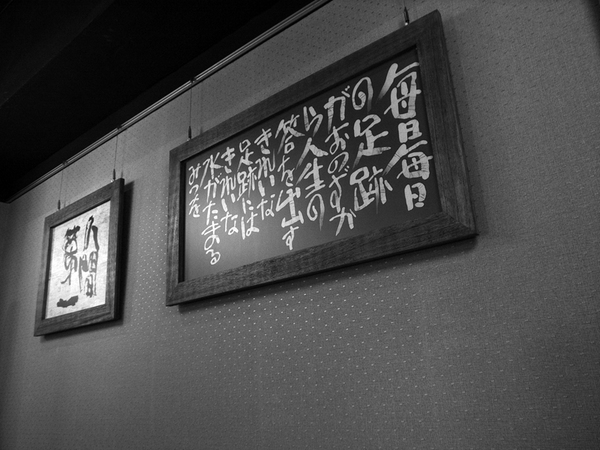 毎日毎日
の足跡
がおのずか
ら人生の
答を出す
きれいな
足跡には
きれいな
水がたまる
みつを
人間
第一